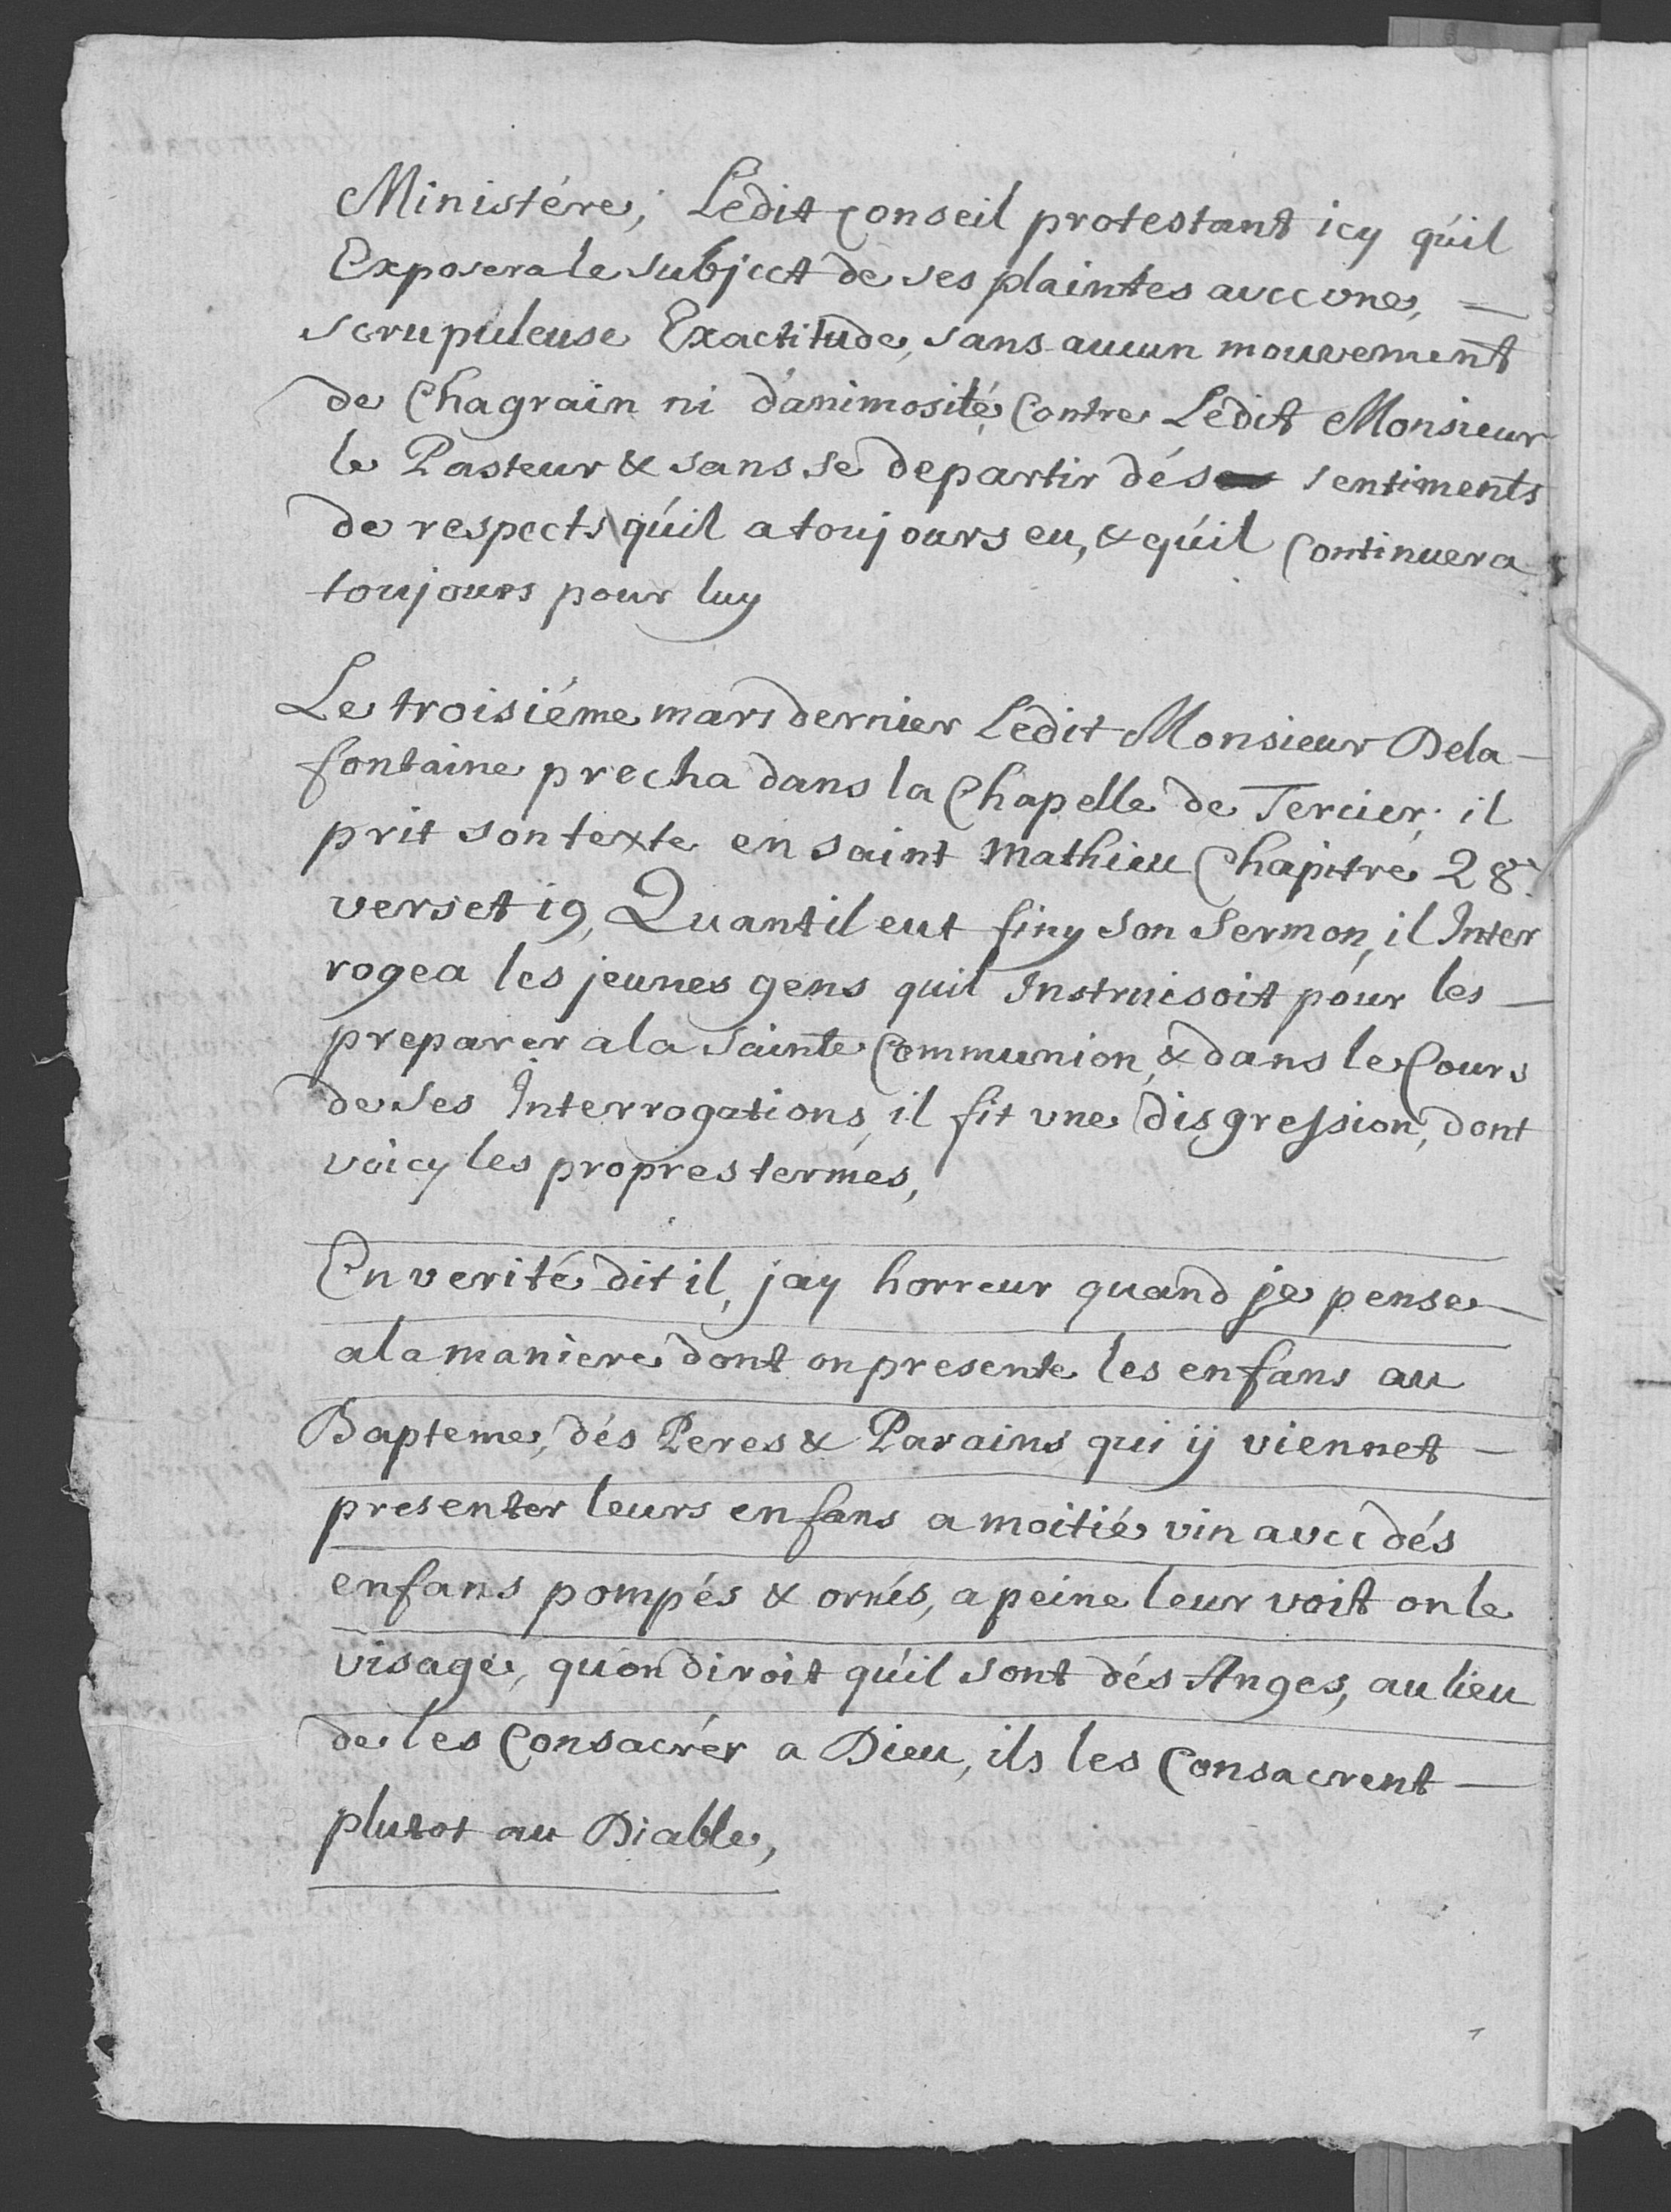 Ministére; Ledit Conseil protestant icy qúil
Exposera le Subject de ses plaintes avec une, =
scrupuleuse Exactitude, sans aucun mouvement
de Chagrain ni d'animosité, Contre Ledit Monsieur
le Pasteur & sans se departir dés sentiments
de respects qúil a toujours eu, & qúil Continuera
toujours pour luy
Le troisiéme mars dernier Ledit Monsieur Dela-
fontaine precha dans la Chapelle de Tercier; il
prit son texte en saint Mathieu Chapitre 28e.
verset 19, Quant il eut finy son Sermon, il Inter
rogea les jeunes gens quil Instruisoit pour les -
preparer a la Sainte Communion, & dans le Cours
de ses Interrogations, il fit une disgression, dont
voicy les propres termes,
En verité dit il, jay horreur quand je pense -
a la maniere dont on presente les enfans au
Bapteme, dés Peres & Parains qui ÿ viennet -
presenter leurs enfans a moitié vin avec dés
enfans pompés & ornés, a peine leur voit on le
visage, quon diroit qúil sont dés Anges, au lieu
de les Consacrér a Dieu, ils les Consacrent -
plutot au Diable,